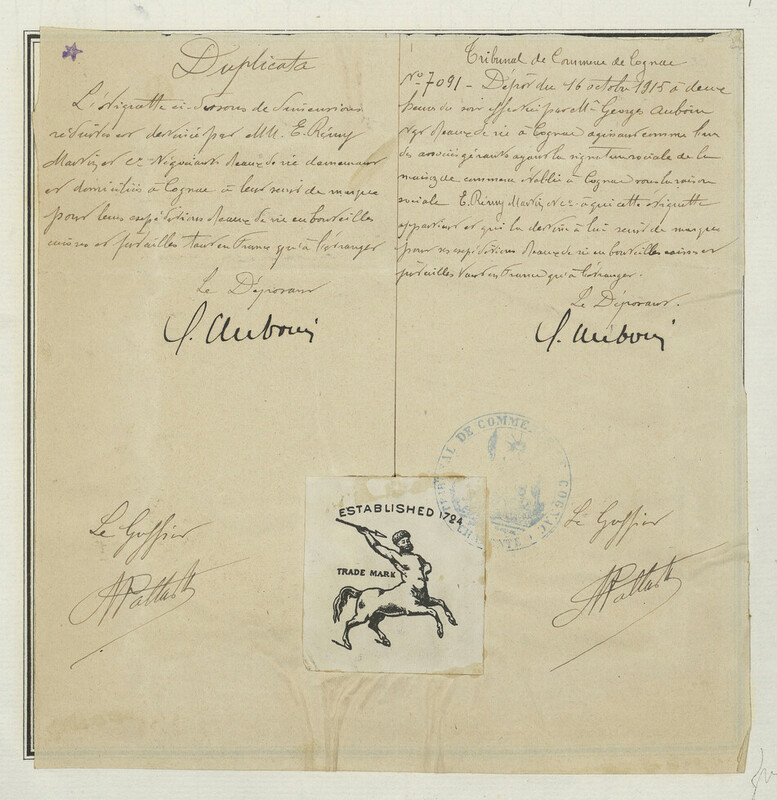 Duplicata
L'étiquette ci-dessous de dimensions
réduites est destinée par MM. E. Rémy
Martin et Cie Négociants d'eaux de vie demeurant
et domiciliés à Cognac à leur servir de marque
pour leurs expéditions d'eaux de vie en bouteilles
caisses et futailles tant en France qu'à l'étranger
Le Déposant
G. Auboin
Le Greffier
Tribunal de Commerce de Cognac
N° 7091 - Dépôt du 16 octobre 1915 à deux
heures du soir effectué par Mr George Auboin
Négt d'eaux de vie à Cognac agissant comme l'un
des gérants ayant la signature sociale de la
maison de commerce établie à Cognac sous la raison
sociale E. Rémy Martin et Cie à qui cette étiquette
appartient et qui la destine à lui servir de marque
pour ses expéditions d'eaux de vie en bouteilles caisses et
futailles tant en France qu'à l'étranger.
Le Déposant.
G. Auboin
TRIBUNAL DE COMMERCE COGNAC
Le Greffier
ESTABLISHED 1724
TRADE MARK